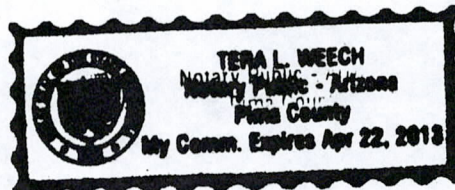 TERA L. WEECH
Notary Public - Arizona
Pima County
My Comm. Expires Apr 22, 2013